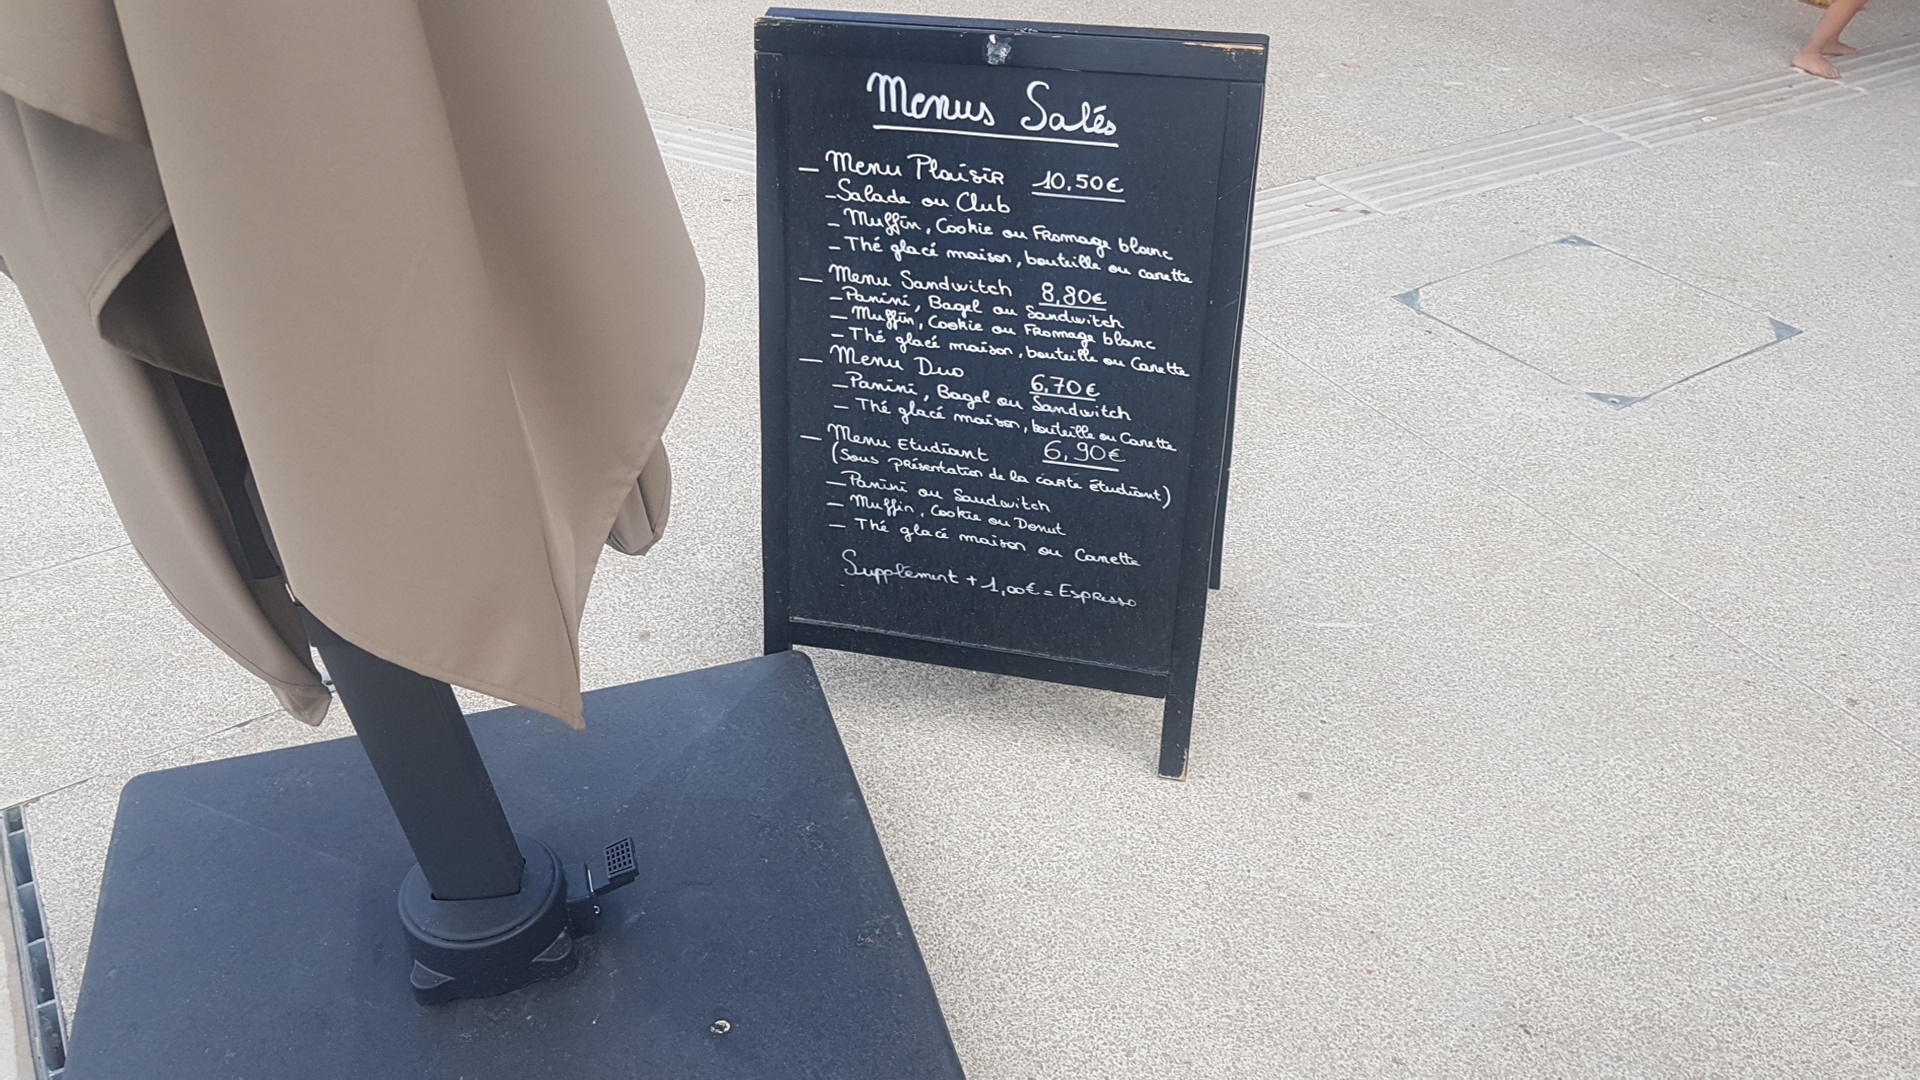 Menus Salés
— Menu Plaisir 10,50€
- Salade ou Club
- Muffin, Cookie ou Fromage blanc
- Thé glacé maison, bouteille ou canette
— Menu Sandwitch 8,80€
- Panini, Bagel ou Sandwitch
- Muffin, Cookie ou Fromage blanc
- Thé glacé maison, bouteille ou Canette
— Menu Duo 6,70€
- Panini, Bagel ou Sandwitch
- Thé glacé maison, bouteille ou Canette
— Menu Etudiant 6,90€
(Sous présentation de la carte étudiant)
- Panini ou Sandwitch
- Muffin, Cookie ou Donut
- Thé glacé maison ou Canette
Supplément + 1,00€ = Espresso